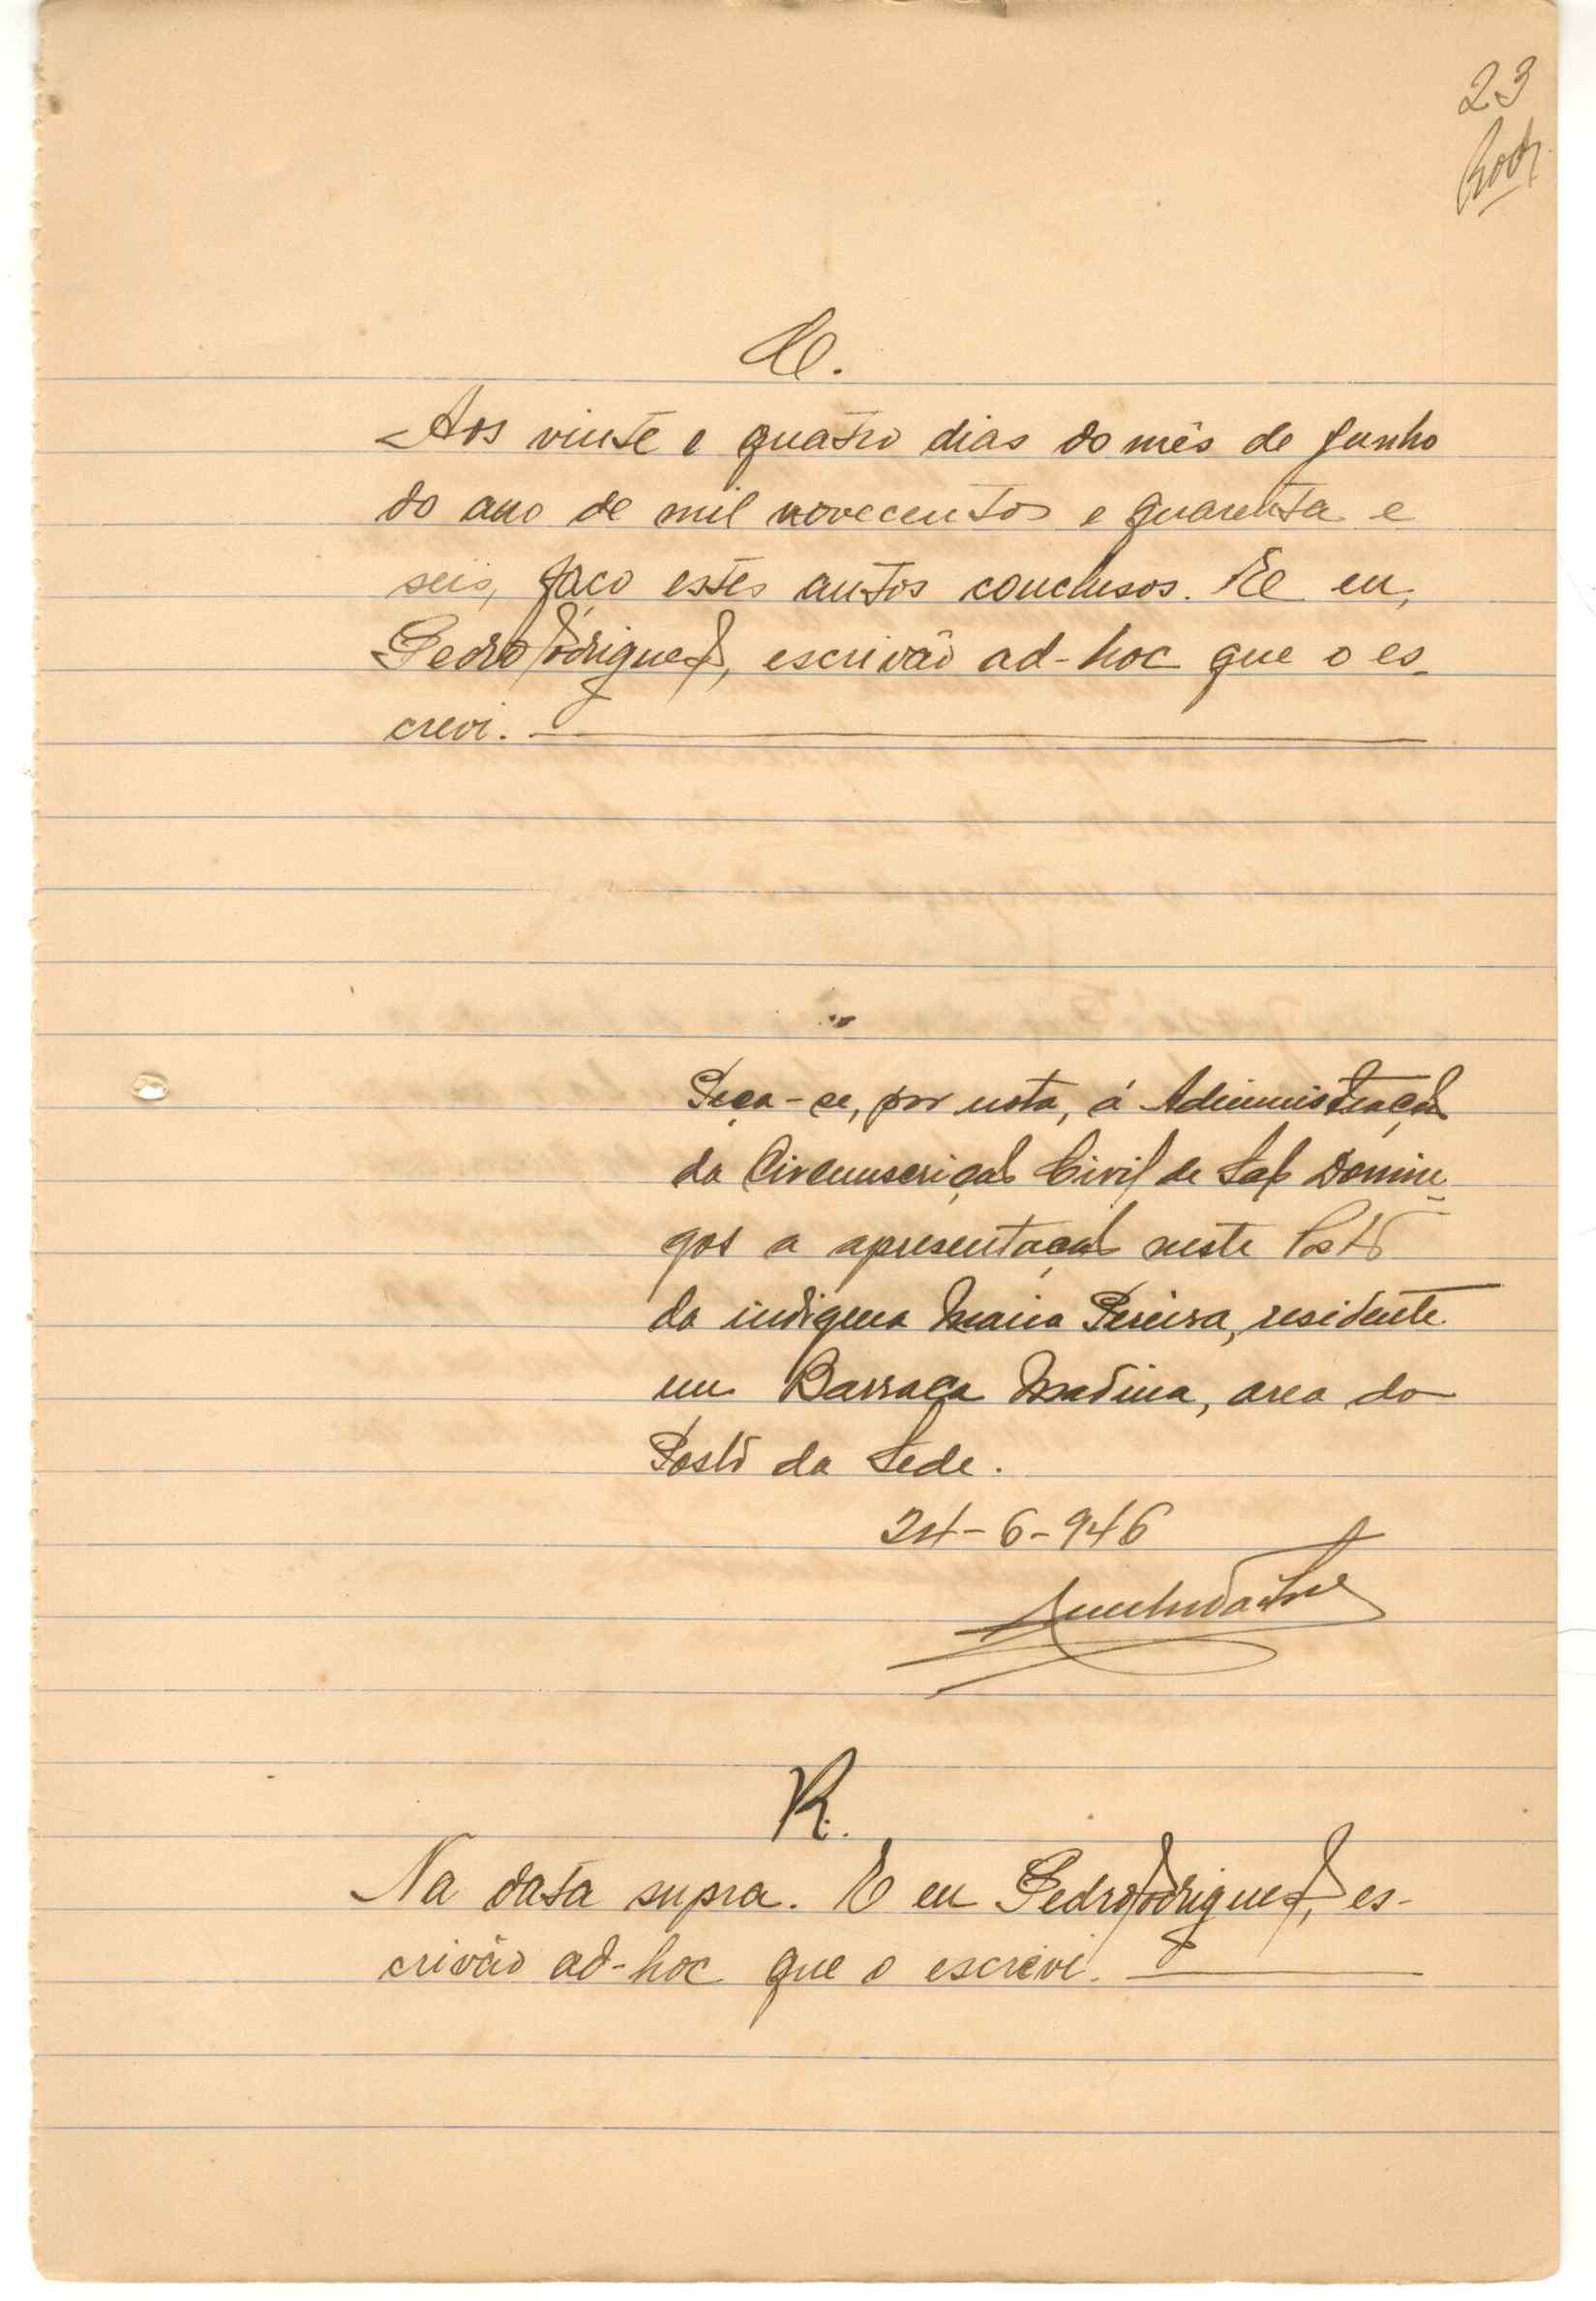 23
Rodr.
Cl.
Aos vinte e quatro dias do mês de Junho
do ano de mil novecentos e quarenta e
seis, faço estes autos conclusos. E eu,
Pedro Rodrigues, escrivão ad-hoc que o es-
crevi.
Peça-se, por nota, á Administração
da Circunscrição Civil de São Domin-
gos a apresentação neste Posto
da indigena Maria Pereira, residente
em Barraca Madina, area do
Posto da Sede.
24-6-946
R.
Na data supra. E eu Pedro Rodrigues, es-
crivão ad-hoc que o escrevi.